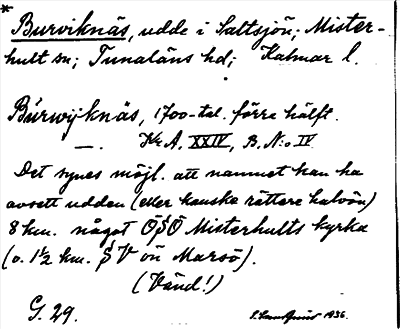 * Burviknäs, udde i Saltsjön; Mister-
hult sn; Tunaläns hd; Kalmar l.
Burwijknäs, 1700-tal. förre hälft.
—. Kr A, XXIV, B. N:o IV
Det synes möjl. att namnet kan ha
avsett udden (eller kanske rättare halvön)
8 km. något ÖSÖ Misterhults kyrka
(o. 1½ km. SV ön Marsö).
(Vänd!)
G. 29. 1936.